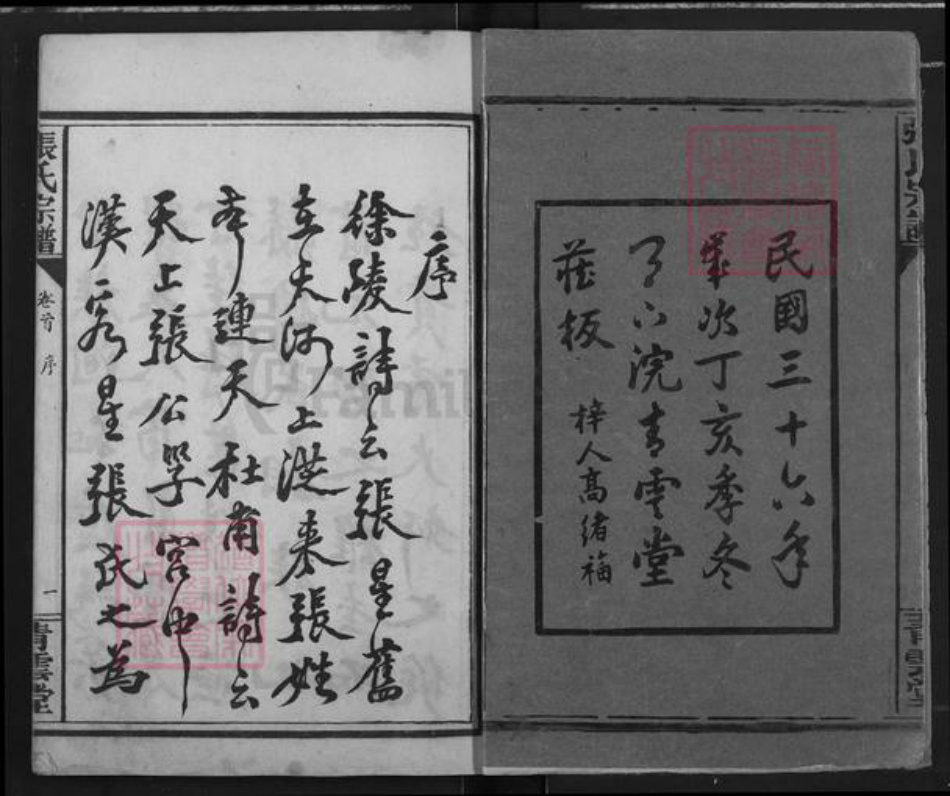 民國三十六年
歲次丁亥季冬
青雲堂
莊板
梓人高緒福
序
徐陵詩云張星舊
在天河上洪来張姓
本連天杜甫詩云
天上張公子宮中
漢客星張氏之為
張氏宗譜
卷首 序
一
青雲堂